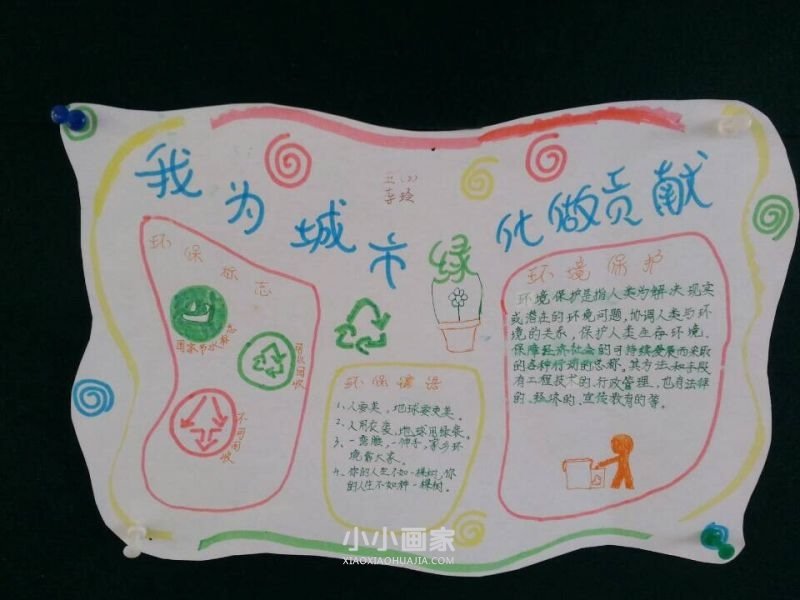 我为城市绿化做贡献
三(2)
李经
环保标志
国家节水标志
可以回收
不可回收
环保谚语
1、人要美，地球要更美。
2、人用衣装，地球用绿装。
3、一弯腰，一伸手，家乡环
境靠大家。
4、你的人生不如一棵树，你
的人生不如种一棵树。
环境保护
环境保护是指人类为解决现实
或潜在的环境问题，协调人类与环
境的关系，保护人类生存环境、
保障经济社会的可持续发展而采取
的各种行动的总称。其方法和手段
有工程技术的、行政管理、也有法律
的、经济的、宣传教育的等。
小小画家
XIAOXIAOHUAJIA.COM